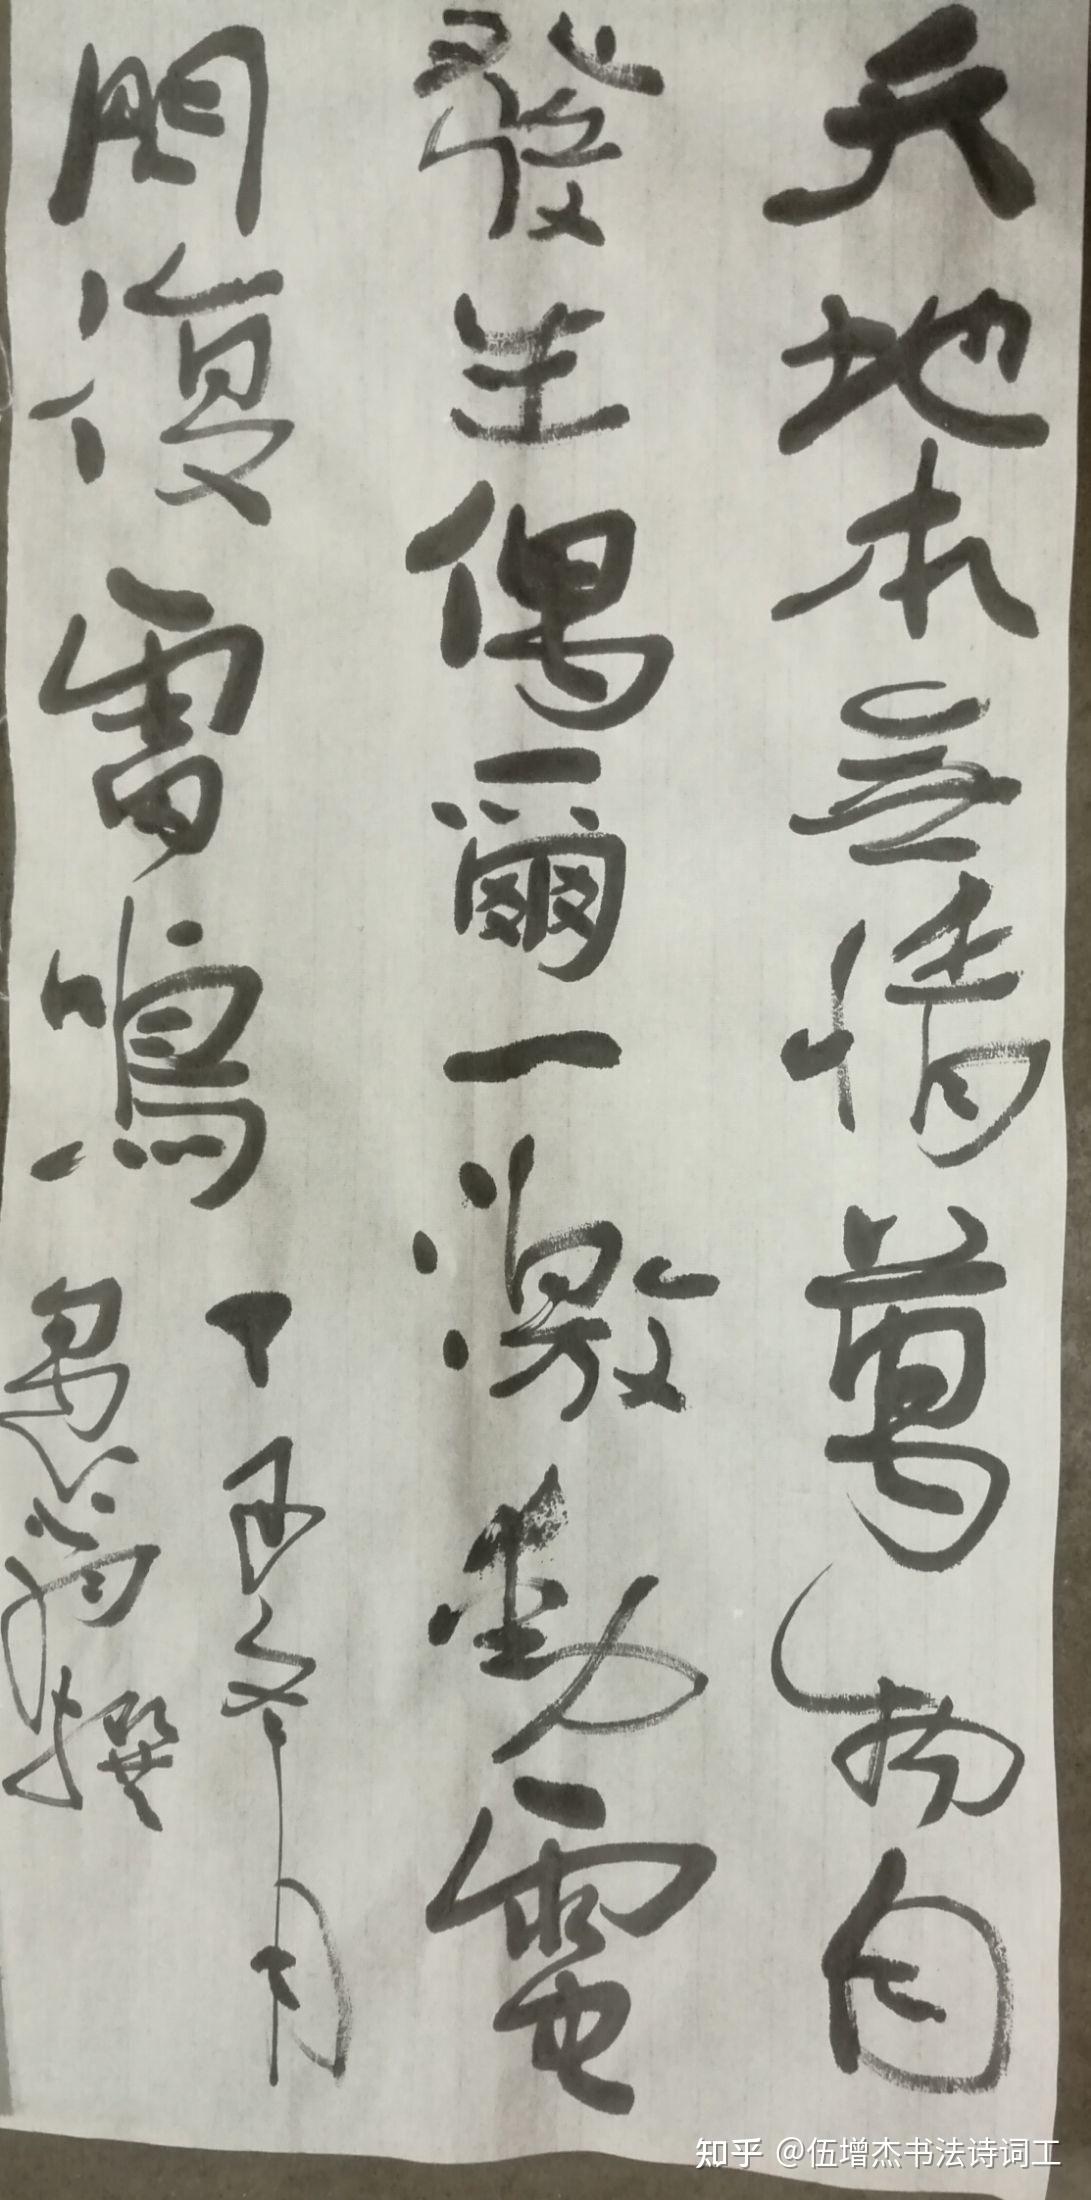 天地本無情萬物自
發生偶爾一激動電
閃復雷鳴
丁丑冬月
愚翁撰
知乎 @伍增杰书法诗词工